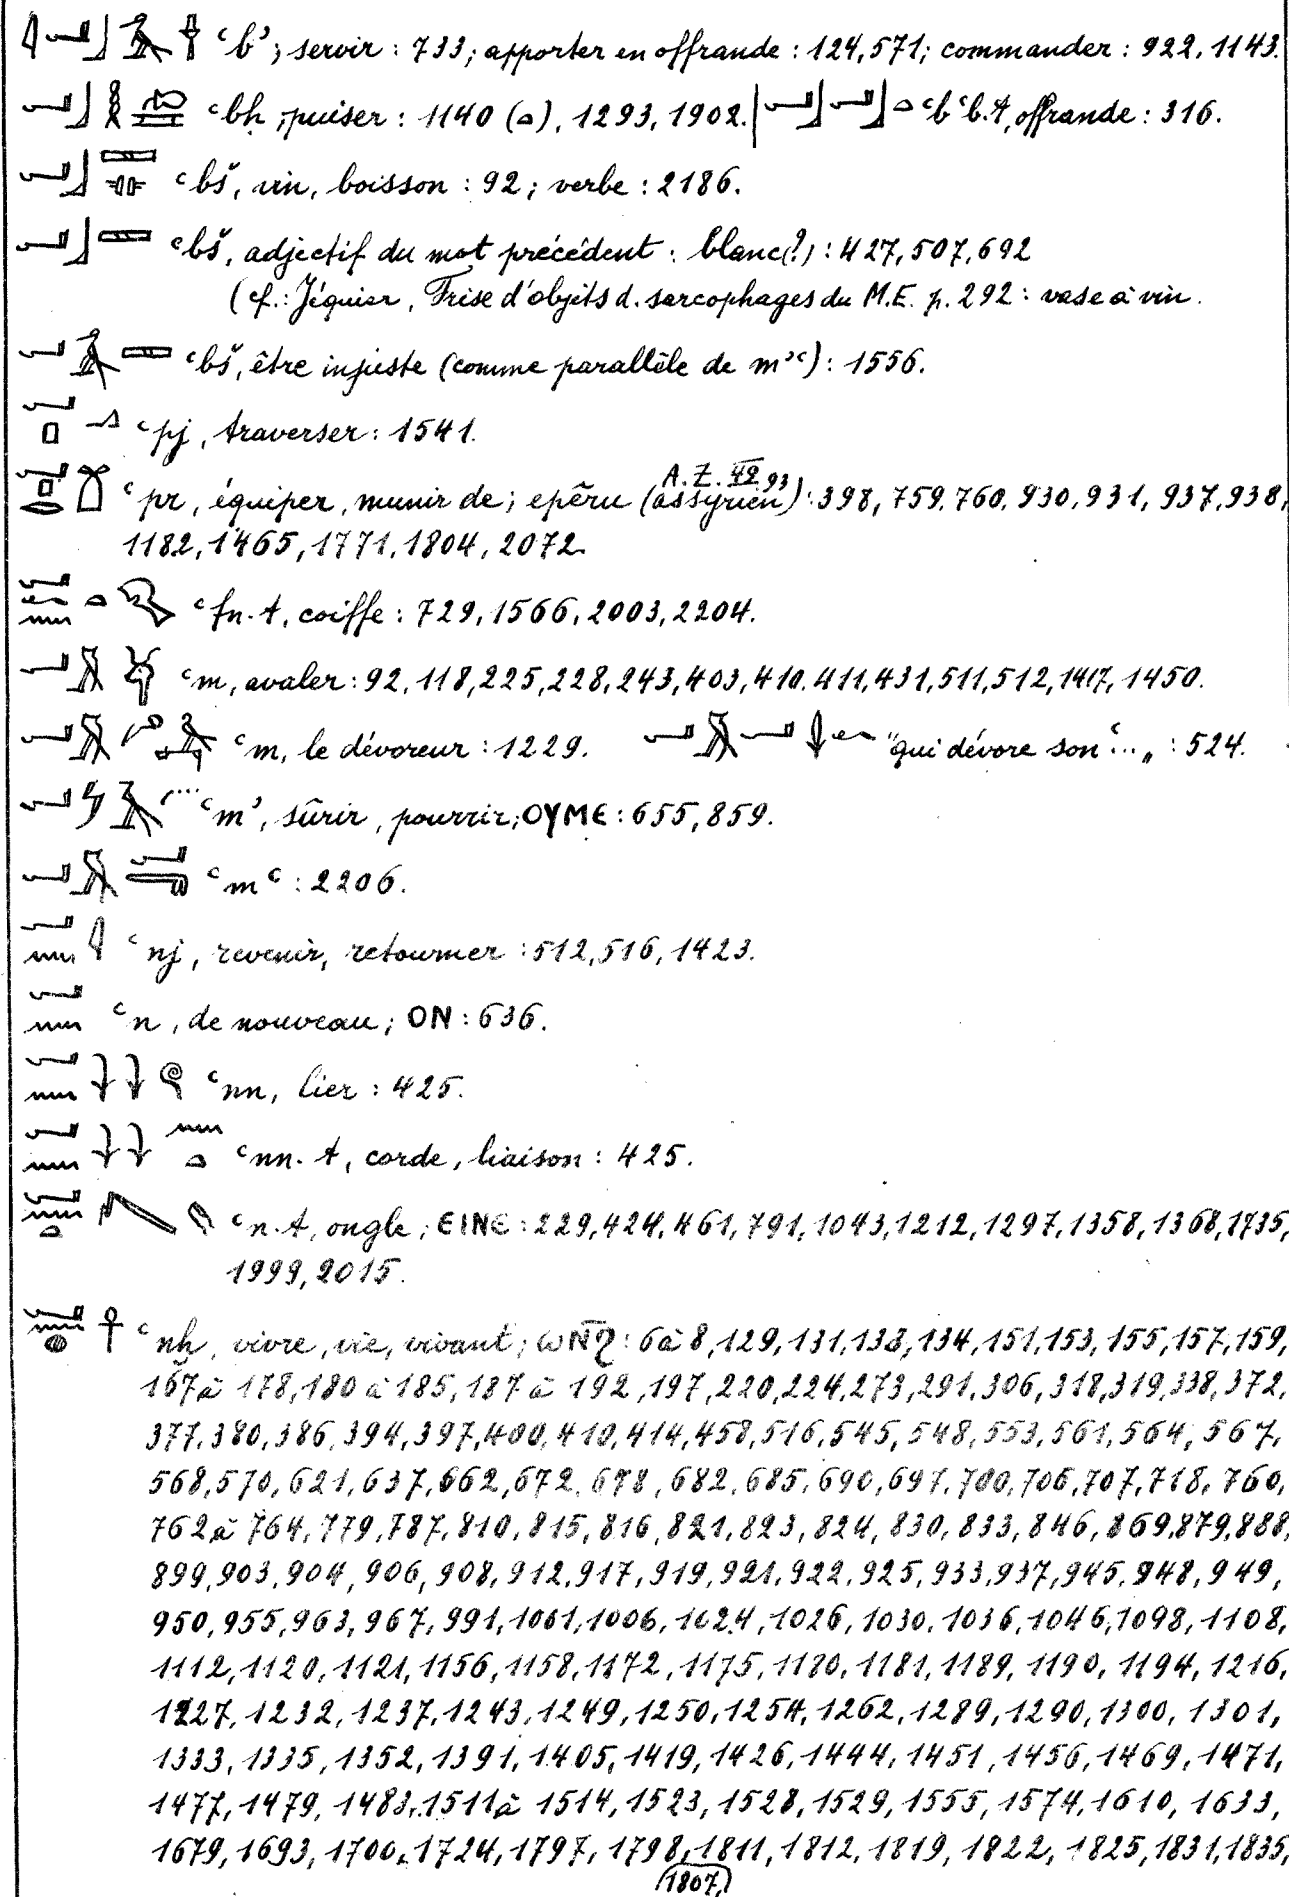 ꜥbꜣ; servir : 733; apporter en offrande : 124,571; commander : 922, 1143.
ꜥbh, puiser : 1140 (𓏏), 1293, 1902. | ꜥbꜥb.t, offrande : 316.
ꜥbš, vin, boisson : 92; verbe : 2186.
ꜥbš, adjectif du mot précédent : blanc(?) : 427, 507, 692
(cf.: Jéquier, Frise d'objets d. sarcophages du M.E. p. 292 : vase à vin.
ꜥbš, être injuste (comme parallèle de mꜣꜥ) : 1556.
ꜥpj, traverser : 1541.
A.Z. 49 93
ꜥpr, équiper, munir de; epēru (assyrien) : 398, 759, 760, 930, 931, 937, 938,
1182, 1465, 1771, 1804, 2072.
ꜥfn.t, coiffe : 729, 1566, 2003, 2204.
ꜥm, avaler : 92, 118, 225, 228, 243, 403, 410, 411, 431, 511, 512, 1417, 1450.
ꜥm, le dévoreur : 1229. "qui dévore son ꜥ...„ : 524.
ꜥmꜣ, sûrir, pourrir; ⲞⲨⲘⲈ : 655, 859.
ꜥmꜥ : 2206.
ꜥnj, revenir, retourner : 512, 516, 1423.
ꜥn, de nouveau; ⲞⲚ : 636.
ꜥnn, lier : 425.
ꜥnn.t, corde, liaison : 425.
ꜥn.t, ongle; ⲈⲒⲚⲈ : 229, 424, 461, 791, 1043, 1212, 1297, 1358, 1368, 1735,
1999, 2015.
ꜥnḫ, vivre, vie, vivant; ⲱⲛ̅ϩ : 6 à 8, 129, 131, 133, 134, 151, 153, 155, 157, 159,
167 à 178, 180 à 185, 187 à 192, 197, 220, 224, 273, 291, 306, 318, 319, 338, 372,
377, 380, 386, 394, 397, 400, 410, 414, 458, 516, 545, 548, 553, 561, 564, 567,
568, 570, 621, 637, 662, 672, 678, 682, 685, 690, 697, 700, 706, 707, 718, 760,
762 à 764, 779, 787, 810, 815, 816, 821, 823, 824, 830, 833, 846, 869, 879, 888,
899, 903, 904, 906, 908, 912, 917, 919, 921, 922, 925, 933, 937, 945, 948, 949,
950, 955, 963, 967, 991, 1061, 1006, 1024, 1026, 1030, 1036, 1046, 1098, 1108,
1112, 1120, 1121, 1156, 1158, 1172, 1175, 1180, 1181, 1189, 1190, 1194, 1216,
1227, 1232, 1237, 1243, 1249, 1250, 1254, 1262, 1289, 1290, 1300, 1301,
1333, 1335, 1352, 1391, 1405, 1419, 1426, 1444, 1451, 1456, 1469, 1471,
1477, 1479, 1483, 1511 à 1514, 1523, 1528, 1529, 1555, 1574, 1610, 1633,
1679, 1693, 1700, 1724, 1797, 1798, 1811, 1812, 1819, 1822, 1825, 1831, 1835,
1807,